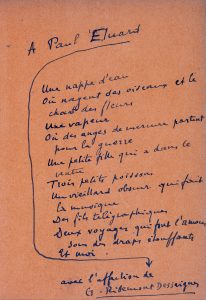 A Paul Eluard
Une nappe d'eau
Où nagent des oiseaux et le
chant des fleurs
Une vapeur
Où des anges de mercure partent
pour la guerre
Une petite fille qui a dans le
ventre
Trois petits poissons
Un vieillard obscur qui fait
la musique
Des fils télégraphiques
Deux voyages qui font l'amour
sous des draps étouffants
Et moi
avec l'affection de
G. Ribemont Dessaignes